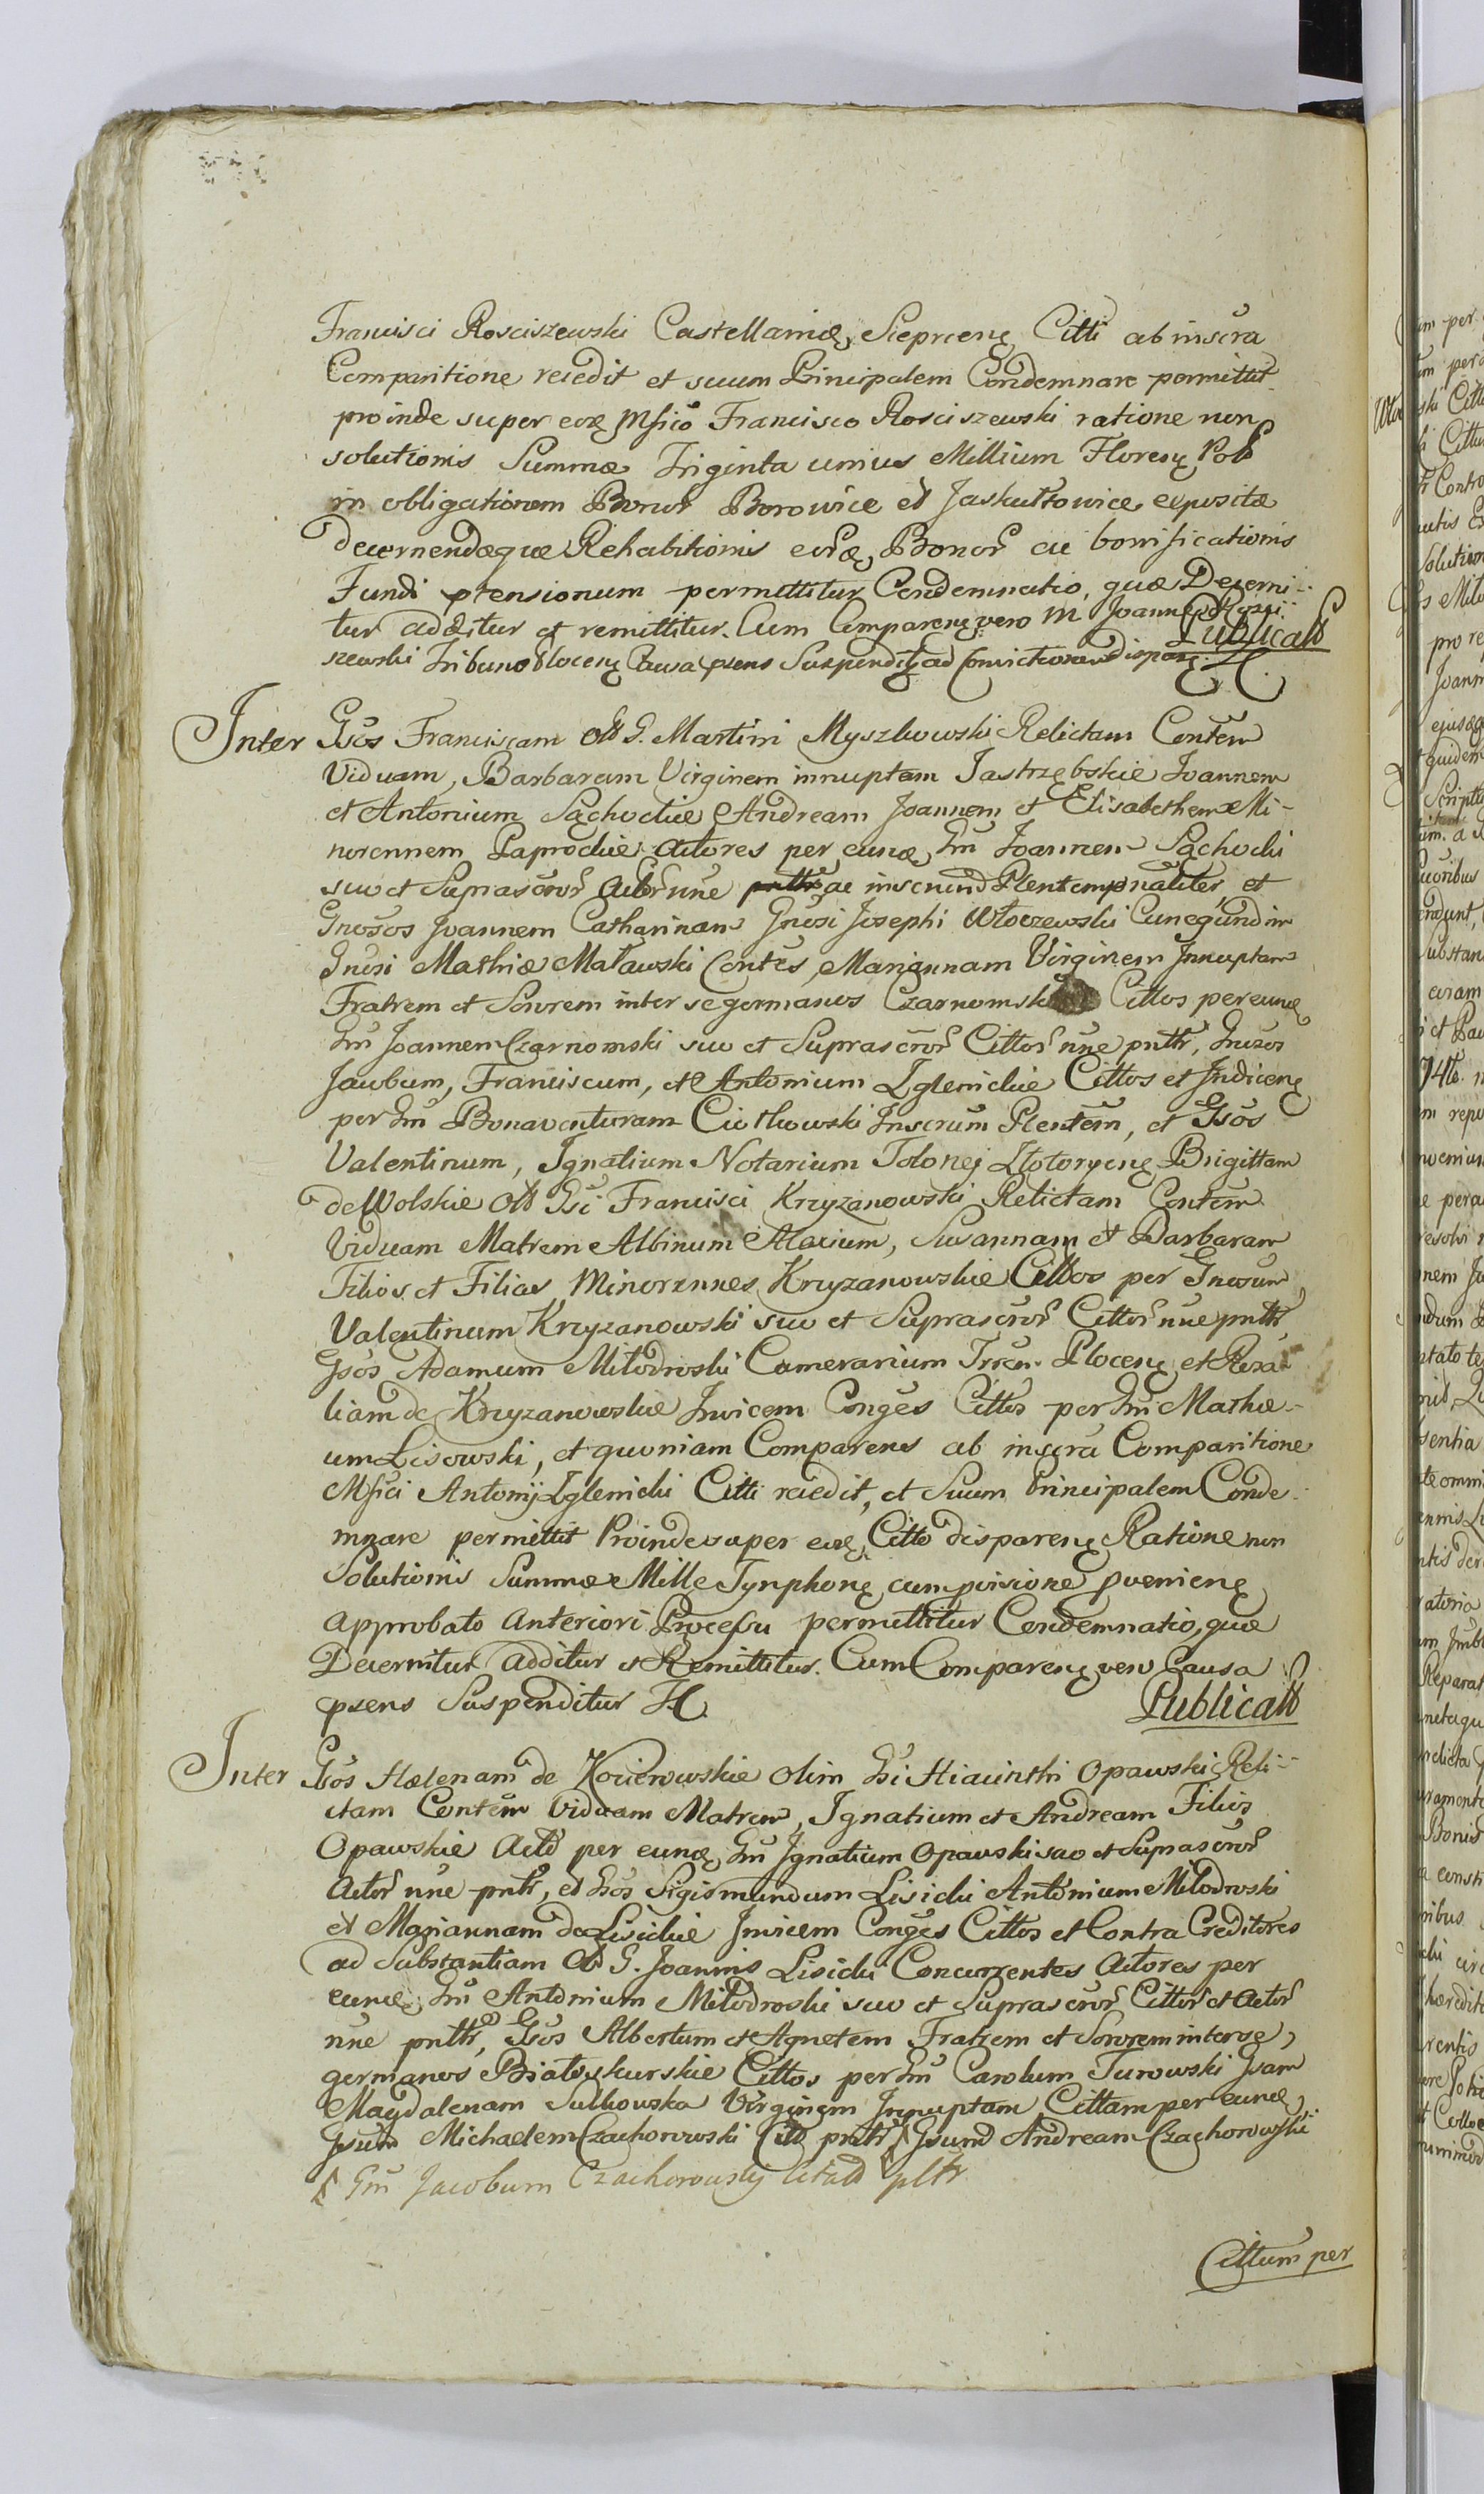 Francisci Rosciszewski Castellanidæ Sieprcenę Citti ab inscra
Comparitione recedit et suum Principalem Condemnare permittit
proinde super eodę Mfico Francisco Rosciszewski ratione non
solutionis Summæ Triginta unius Millium Florenę Pol
in obligationem Bonor Borowice et Jaskułtowice expositæ
decernendæque Rehabitionis eordę Bonor ac bonificationis
Fundi ptensionum permittitur Condemnatio, quæ Decerni-
tur additur et remittitur. Cum Comparenę vero M Joanne Rosci-
szewski Tribuno Plocenę Causa psens Suspenditę ad Convictionem disparę H. Publicatt
Inter Gsos Franciscam Olt G. Martini Myszkowski Relictam Contem
Viduam, Barbaram Virginem innuptam Jastrzębskie Joannem
et Antonium Sąchockie Andream Joannem et Elisabetham Mi-
norennem Paprockie Actores per eundę Gm Joannem Sąchocki
suo et Suprascror Actor nne ac inscrum Plentem pnaliter, et
Gnosos Joannem Catharinam Gnosi Josephi Włoczewski Cunegundim
Gnosi Mathiæ Maławski Contes, Mariannam Virginem Innuptam
Fratrem et Sororem inter se germanos Czarnomskie Cittos per eundę
Gm Joannem Czarnomski suo et Suprascror Cittor nne pntr, Gnosos
Jacobum, Franciscum, et Antonium Zglenickie Cittos et Indicenę
per Gm Bonaventuram Ciołkowski Inscrum Plentem, et Gsos
Valentinum, Ignatium Notarium Brigittam
de Wolskie Olt Gsi Francisci Krzyzanowski Relictam Contem
Viduam Matrem Albinum Alexium, Susannam et Barbaram
Filios et Filias Minorennes Krzyzanowskie Cittos per Gnosum
Valentinum Krzyzanowski suo et Suprascror Cittor nne pntr
Gsos Adamum Miłodroski Camerarium Trrem Plocenę et Rosa-
liam de Krzyzanowskie Invicem Conges Cittos per Gm Mathæ-
um Lisowski, et quoniam Comparens ab inscra Comparitione
Mfici Antonij Zglenicki Citti recedit, et Suum Principalem Conde-
mnare permittit Proinde super eodę Citto disparenę Ratione non
Solutionis Summæ Mille Tynphonę cum pvisione pvenienę
approbato anteriori Processu permittitur Condemnatio, quæ
Decernitur additur et Remittitur. Cum Comparenę vero Causa
psens Suspenditur H. Publicatt
Inter Gsos Hælenam de Kocierowskie olim Gsi Hiacinthi Opawski Reli-
ctam Contem Viduam Matrem, Ignatium et Andream Filios
Opawskie Actt per eundę Gm Ignatium Opawski suo et Suprascror
Actor nne pntr, et Gsos Sigismundum Lisicki Antonium Miłodroski
et Mariannam de Lisickie Invicem Conges Cittos et Contra Creditores
ad Substantiam Olt G. Joannis Lisicki Concurrentes Actores per
eundę Gm Antonium Miłodroski suo et Suprascror Cittor et Actor
nne pntr, Gsos Albertum et Agnetem Fratrem et Sororem inter se
germanos Białoskurskie Cittos per Gm Carolum Turowski Gsam
Magdalenam Sulkowska Virginem Innuptam Cittam per eundę
Gsum Michaelem Czachorowski Citt pntr Gsum Andream Czachorowski
Gm Jacobum Czachorowsky Citatt pltr
Cittum per